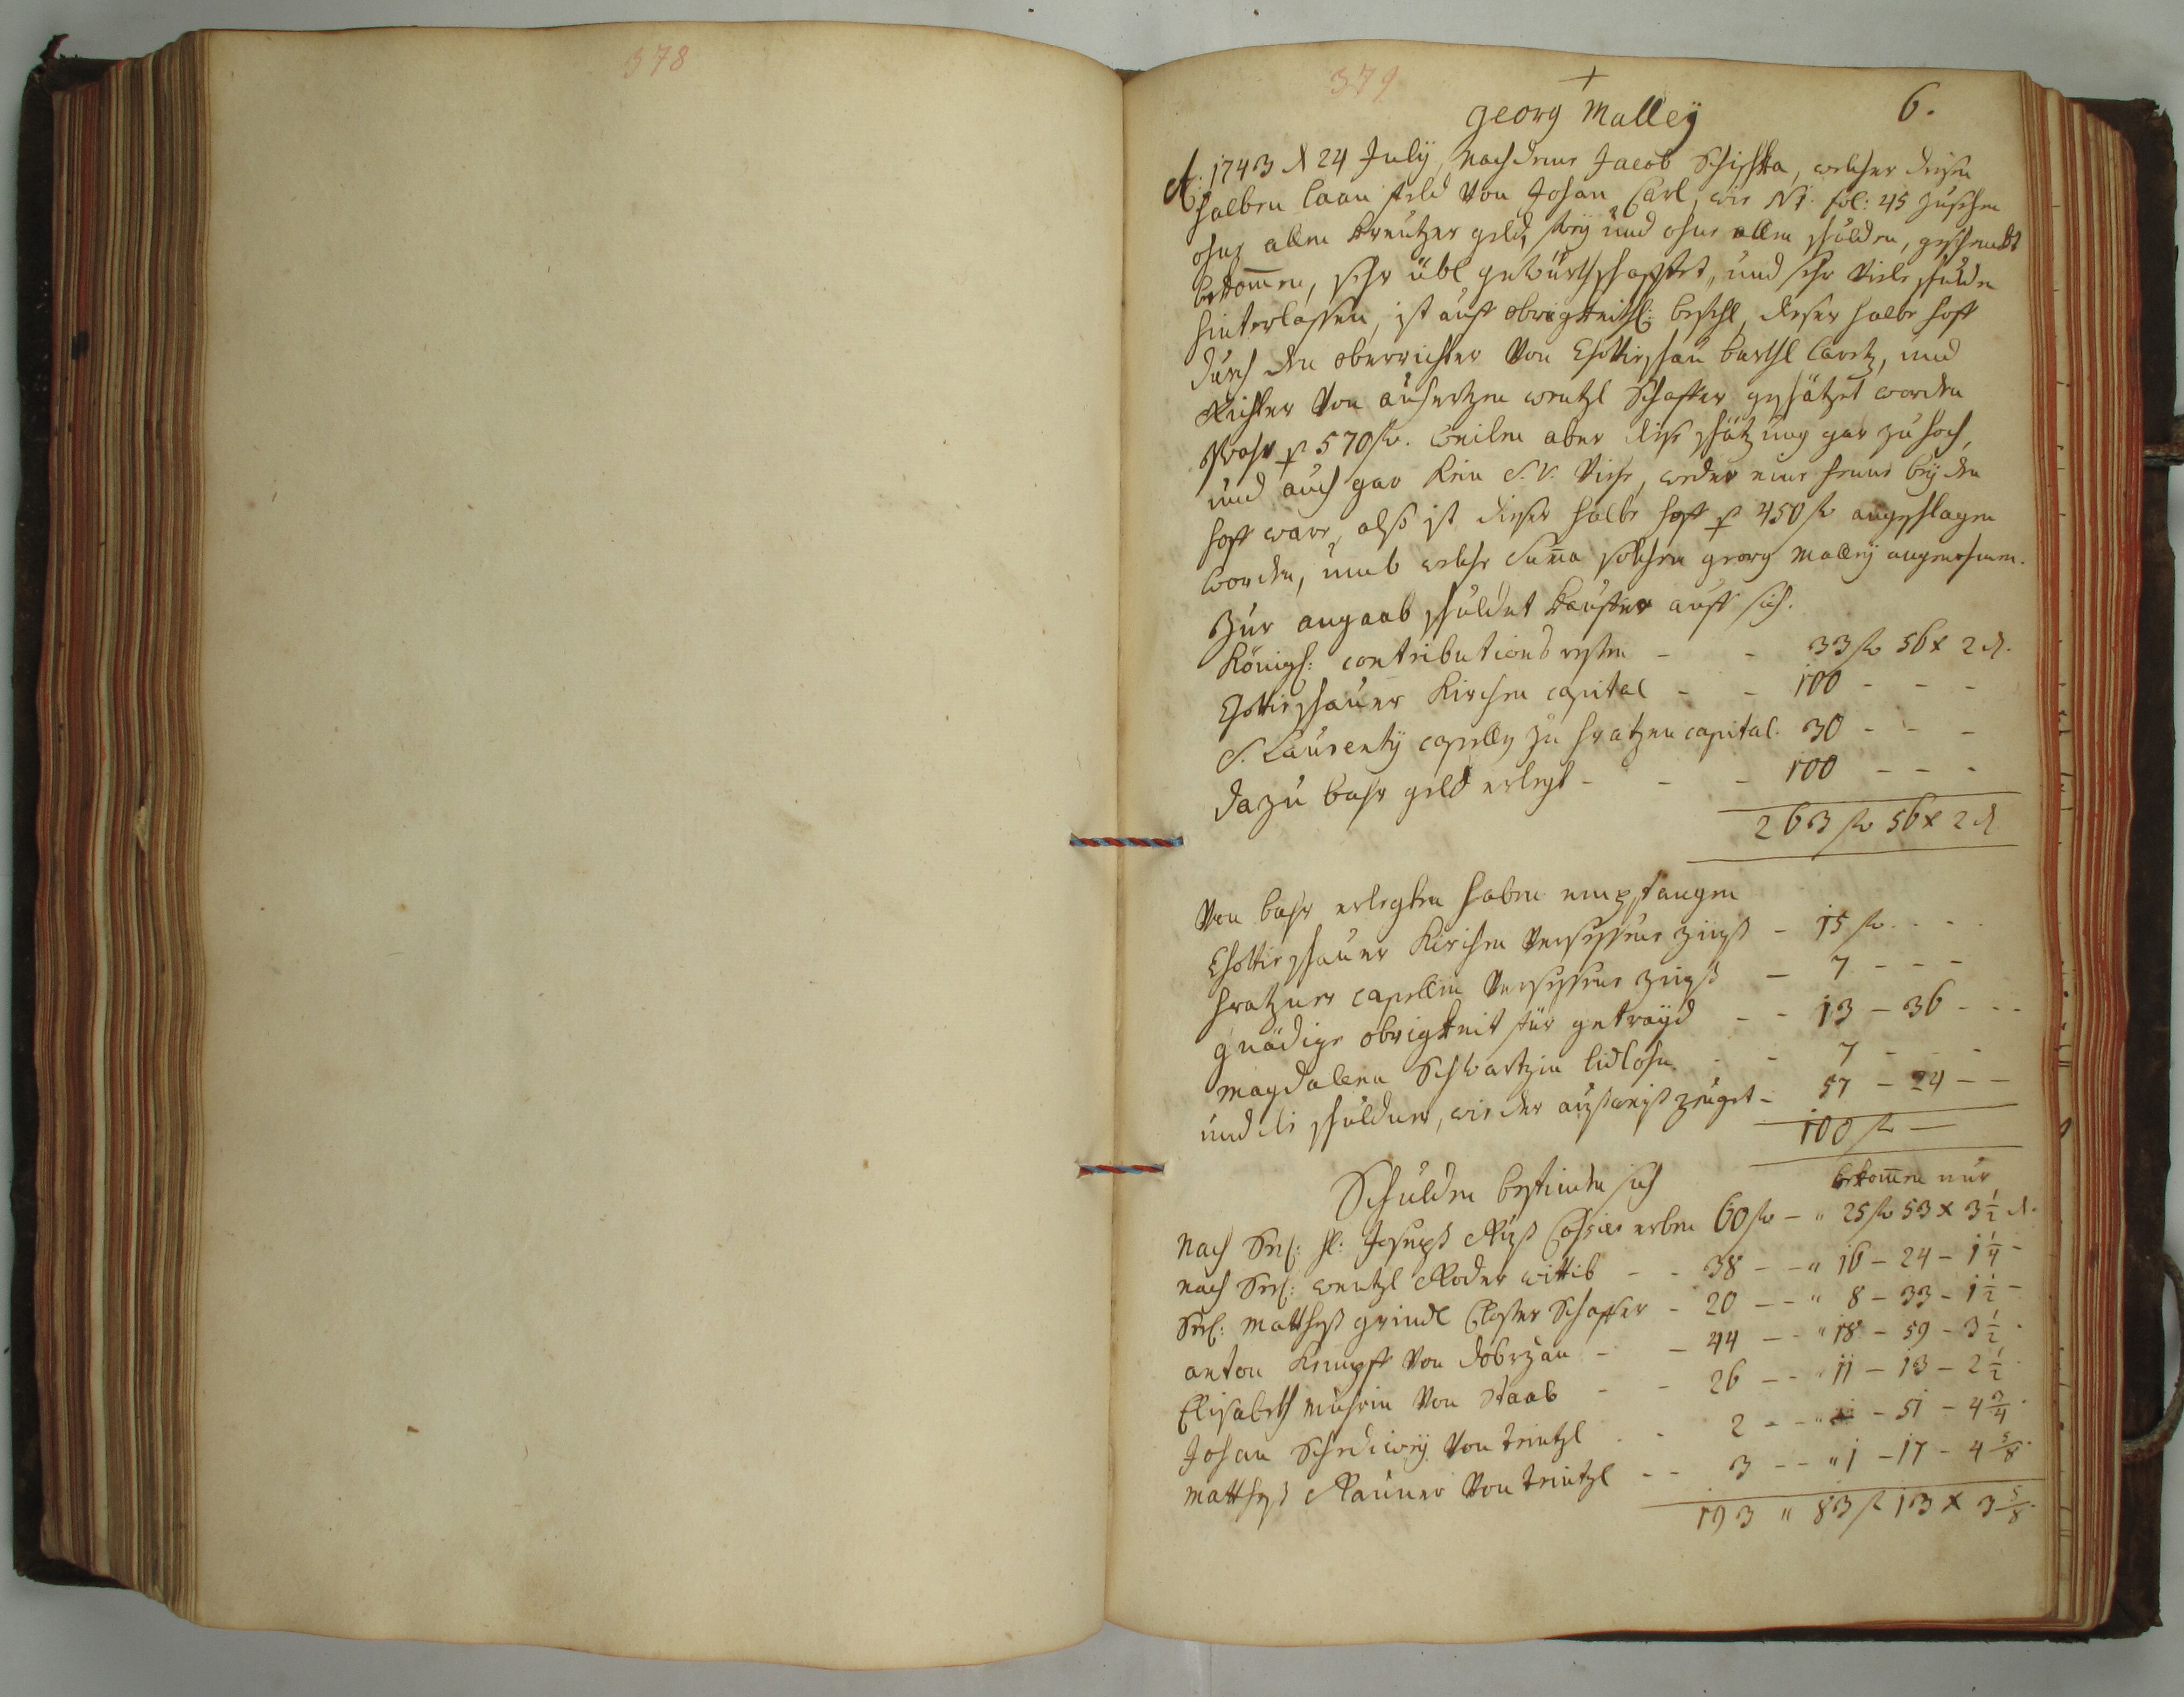 378
379
+
6.
Georg Malleÿ
A: 1743 d 24 Julÿ, nachdeme Jacob Schischka, welcher diesen
halben laan feld von Johan Carl, wie N 1. fol: 45 zusehen
ohne allen Kreutzer geld, freÿ und ohne allen schulden, geschenckt
bekom̄en, sehr übl gewürthschafftet, und sehr viele schulden
hinterlassen, ist auff obrigkeitl: befehl, dieser halbe hoff
durch den oberrichter von Chottieschau Barthl Caretz, und
Richter von Auhertzen Wentzl Schaffer geschätzet worden
p 570 fl. Weilen aber diese schätzung gar zu hoch,
und auch gar kein S. V. Viehe, weder eine henne beÿ den
hoff ware, alß ist dieser halbe hoff p 450 fl angeschlagen
worden, umb welche Sum̄a solchen Georg Malleÿ angenohmen.
Zur angaab schuldet Kauffer auff sich.
Königl: contributions resten - - 33 fl 56 x 2 d.
Chottieschauer Kirchen capital - - 100 - - -
S. Laurentÿ capelln zu hratzen capital. 30 - - -
dazu bahr geld erlegt - - - 100 - - -
263 fl 56 x 2 d
Von bahr erlegten haben empfangen
Chottieschauer Kirchen versessene zinß - 15 fl. - -
hratzner capellen versessene zinß - 7 - - -
gnädige obrigkeit für getraÿd - - 13 - 36 - - -
Magdalena Schwartzin lidlohn - - 7 - - -
und die schuldner, wie der außweiß zeuget - 57 - 24 - -
100 fl -
Schulden befinden sich bekom̄en nur
Nach Seel: H: Joseph Riß erben 60 fl - " 25 fl 53 x 3 1/2 d.
nach Seel: Wentzl Roder wittib - - 38 - - " 16 - 24 - 1 1/4 -
Seel: Matthes Grindl Closter Schaffer - 20 - - " 8 - 33 - 1 1/2 -
Anton Kempff von Dobrzan - - 44 - - " 18 - 59 - 3 1/2 -
Elisabeth Muhrin von Staab - - 26 - - " 11 - 13 - 2 1/2 -
Johan Schediweÿ von Teintzl - - 2 - - " - 51 - 4 3/4 -
Matthes Rauner von Teintzl - - 3 - - " 1 - 17 - 4 5/8 -
193 " 83 fl 13 x 3 5/8